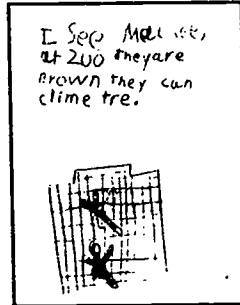 I See
at zoo theyare
Brown they can
clime tre.